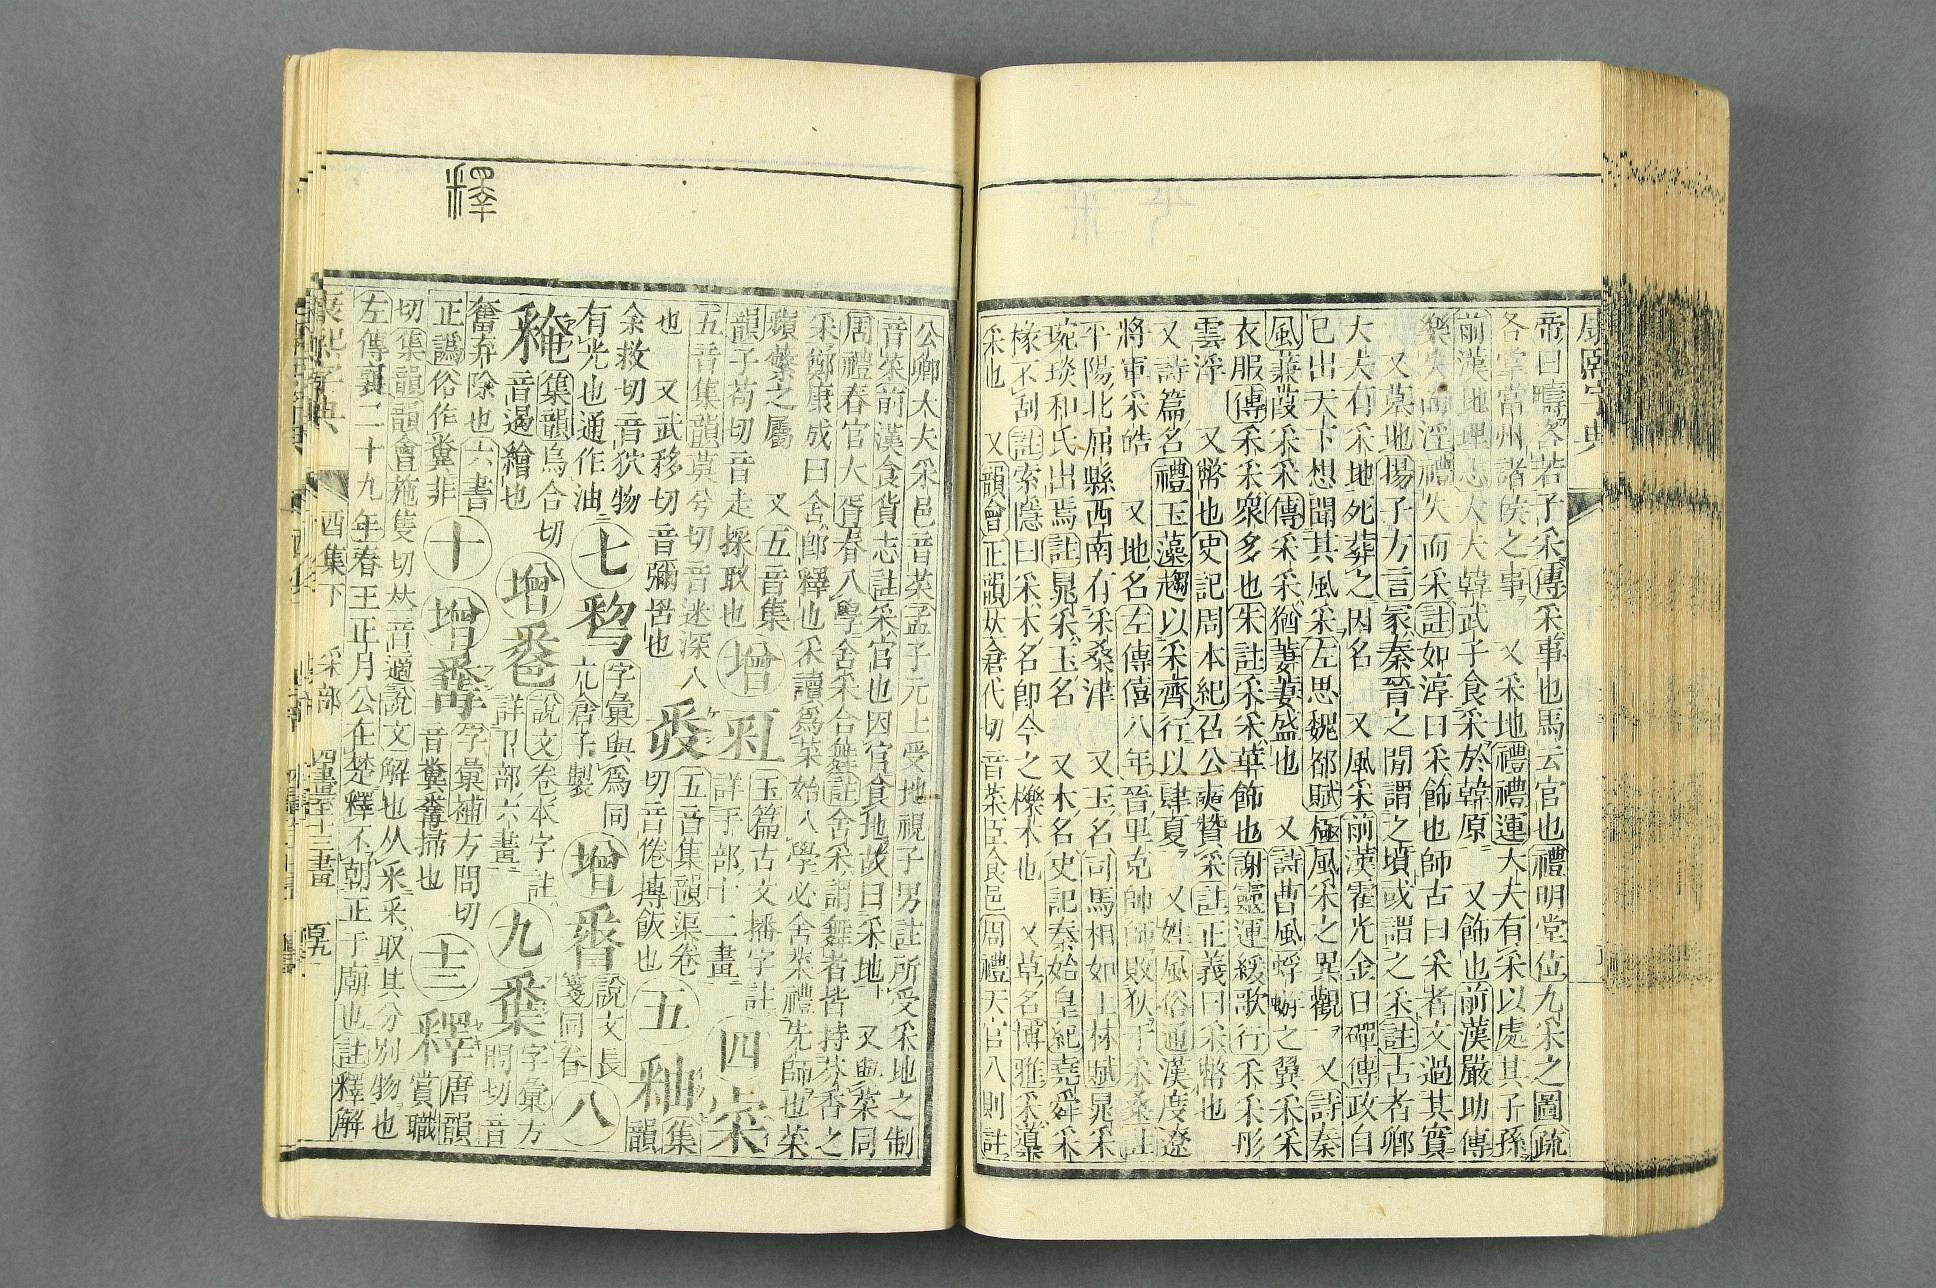 康熙字典
帝曰疇咨若予采傳采事也馬云官也禮明堂位九采之圖疏
各掌當州諸侯之事 又采地禮禮運大夫有采以處其子孫
前漢地理志大夫韓武子食采於韓原 又飾也前漢嚴助傳
樂失而淫禮失而采註如淳曰采飾也師古曰采者文過其實
又墓地揚子方言冢秦晉之閒謂之墳或謂之采註古者卿
大夫有采地死葬之因名 又風采前漢霍光金日磾傳政自
已出天下想聞其風采左思魏都賦極風采之異觀 又詩秦
風蒹葭采采傳采采猶萋萋盛也 又詩曹風蜉蝣之翼采采
衣服傳采采衆多也朱註采采華飾也謝靈運緩歌行采采彤
雲浮 又幣也史記周本紀召公奭贊采註正義曰采幣也
又詩篇名禮玉藻趨以采齊行以肆夏 又姓風俗通漢度遼
將軍采皓 又地名左傳僖八年晉里克帥師敗狄于采桑註
平陽北屈縣西南有采桑津 又玉名司馬相如上林賦晁采
琬琰和氏出焉註晁采玉名 又木名史記秦始皇紀堯舜采
椽不刮註索隱曰采木名卽今之櫟木也 又草名博雅采藁
采也 又韻會正韻𠀤倉代切音菜臣食邑周禮天官八則註
釋
公卿大夫采邑音菜孟子元上受地視子男註所受采地之制
音菜前漢食貨志註采官也因官食地故曰采地 又與菜同
周禮春官大胥春入學舍采合舞註舍采謂舞者皆持芬香之
采鄭康成曰舍卽釋也采讀爲菜始入學必舍菜禮先師也菜
蘋蘩之屬 又五音集
韻子苟切音走採取也 增 𤓰 玉篇古文播字註
詳手部十二畫 四 宷
五音集韻莫兮切音迷深入
也 又武移切音彌罟也 𥸥 五音集韻渠卷
切音倦摶飯也 五 釉 集韻
余救切音狖物
有光也通作油 七 𥹥 字彙與爲同
亢倉子製 增 番 說文長
箋同春 八
䆋 集韻烏合切
音遏繪也 增 𥻆 說文卷本字註
詳卩部六畫 九 𥻈 字彙方
問切音
奮弃除也六書
正譌俗作糞非 十 增 𥼶 字彙補方問切
音糞糞掃也 十三 釋 唐韻
賞職
切集韻韻會施隻切𠀤音適說文解也从釆釆取其分別物也
左傳襄二十九年春王正月公在楚釋不朝正于廟也註釋解
康熙字典 酉集下 釆部 四畫至十三畫